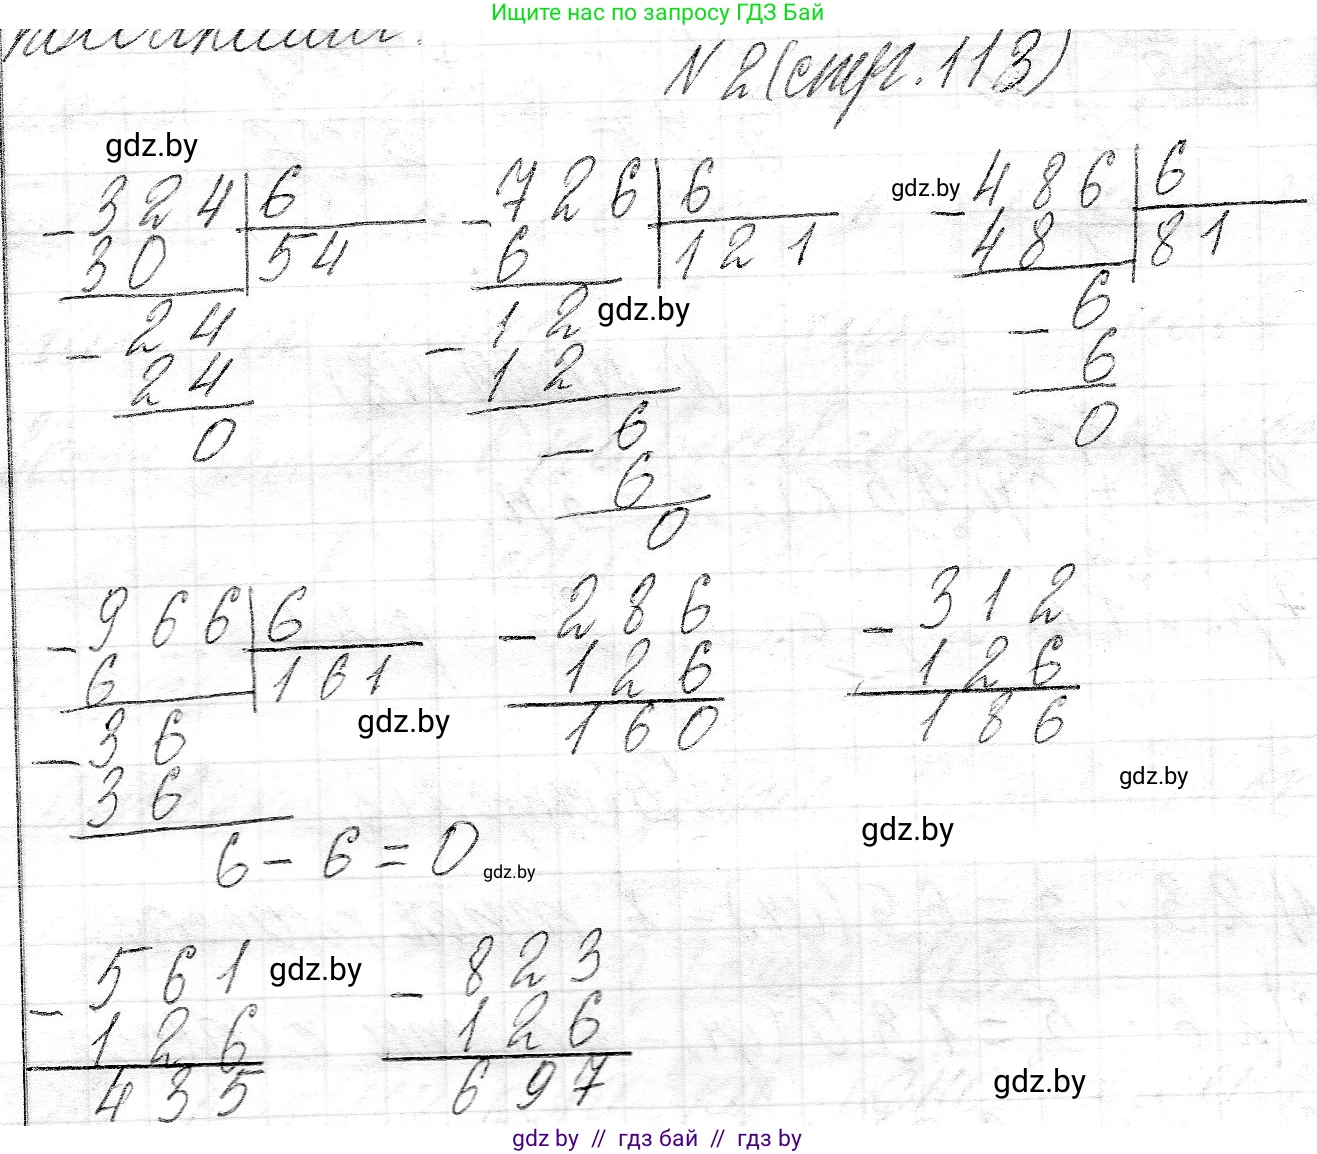 Ищите нас по запросу ГДЗ Бай
N 2 (стр. 113)
gdz.by
- 324 | 6
30 | 54
- 24
24
0
- 726 | 6
6 | 121
gdz.by
- 12
12
- 6
6
0
gdz.by
- 486 | 6
48 | 81
- 6
6
0
- 966 | 6
6 | 161
- 36
36
6 - 6 = 0
gdz.by
gdz.by
- 286
126
160
- 312
126
186
gdz.by
gdz.by
- 561
126
435
gdz.by
- 823
126
697
gdz.by
gdz by // гдз бай // гдз by